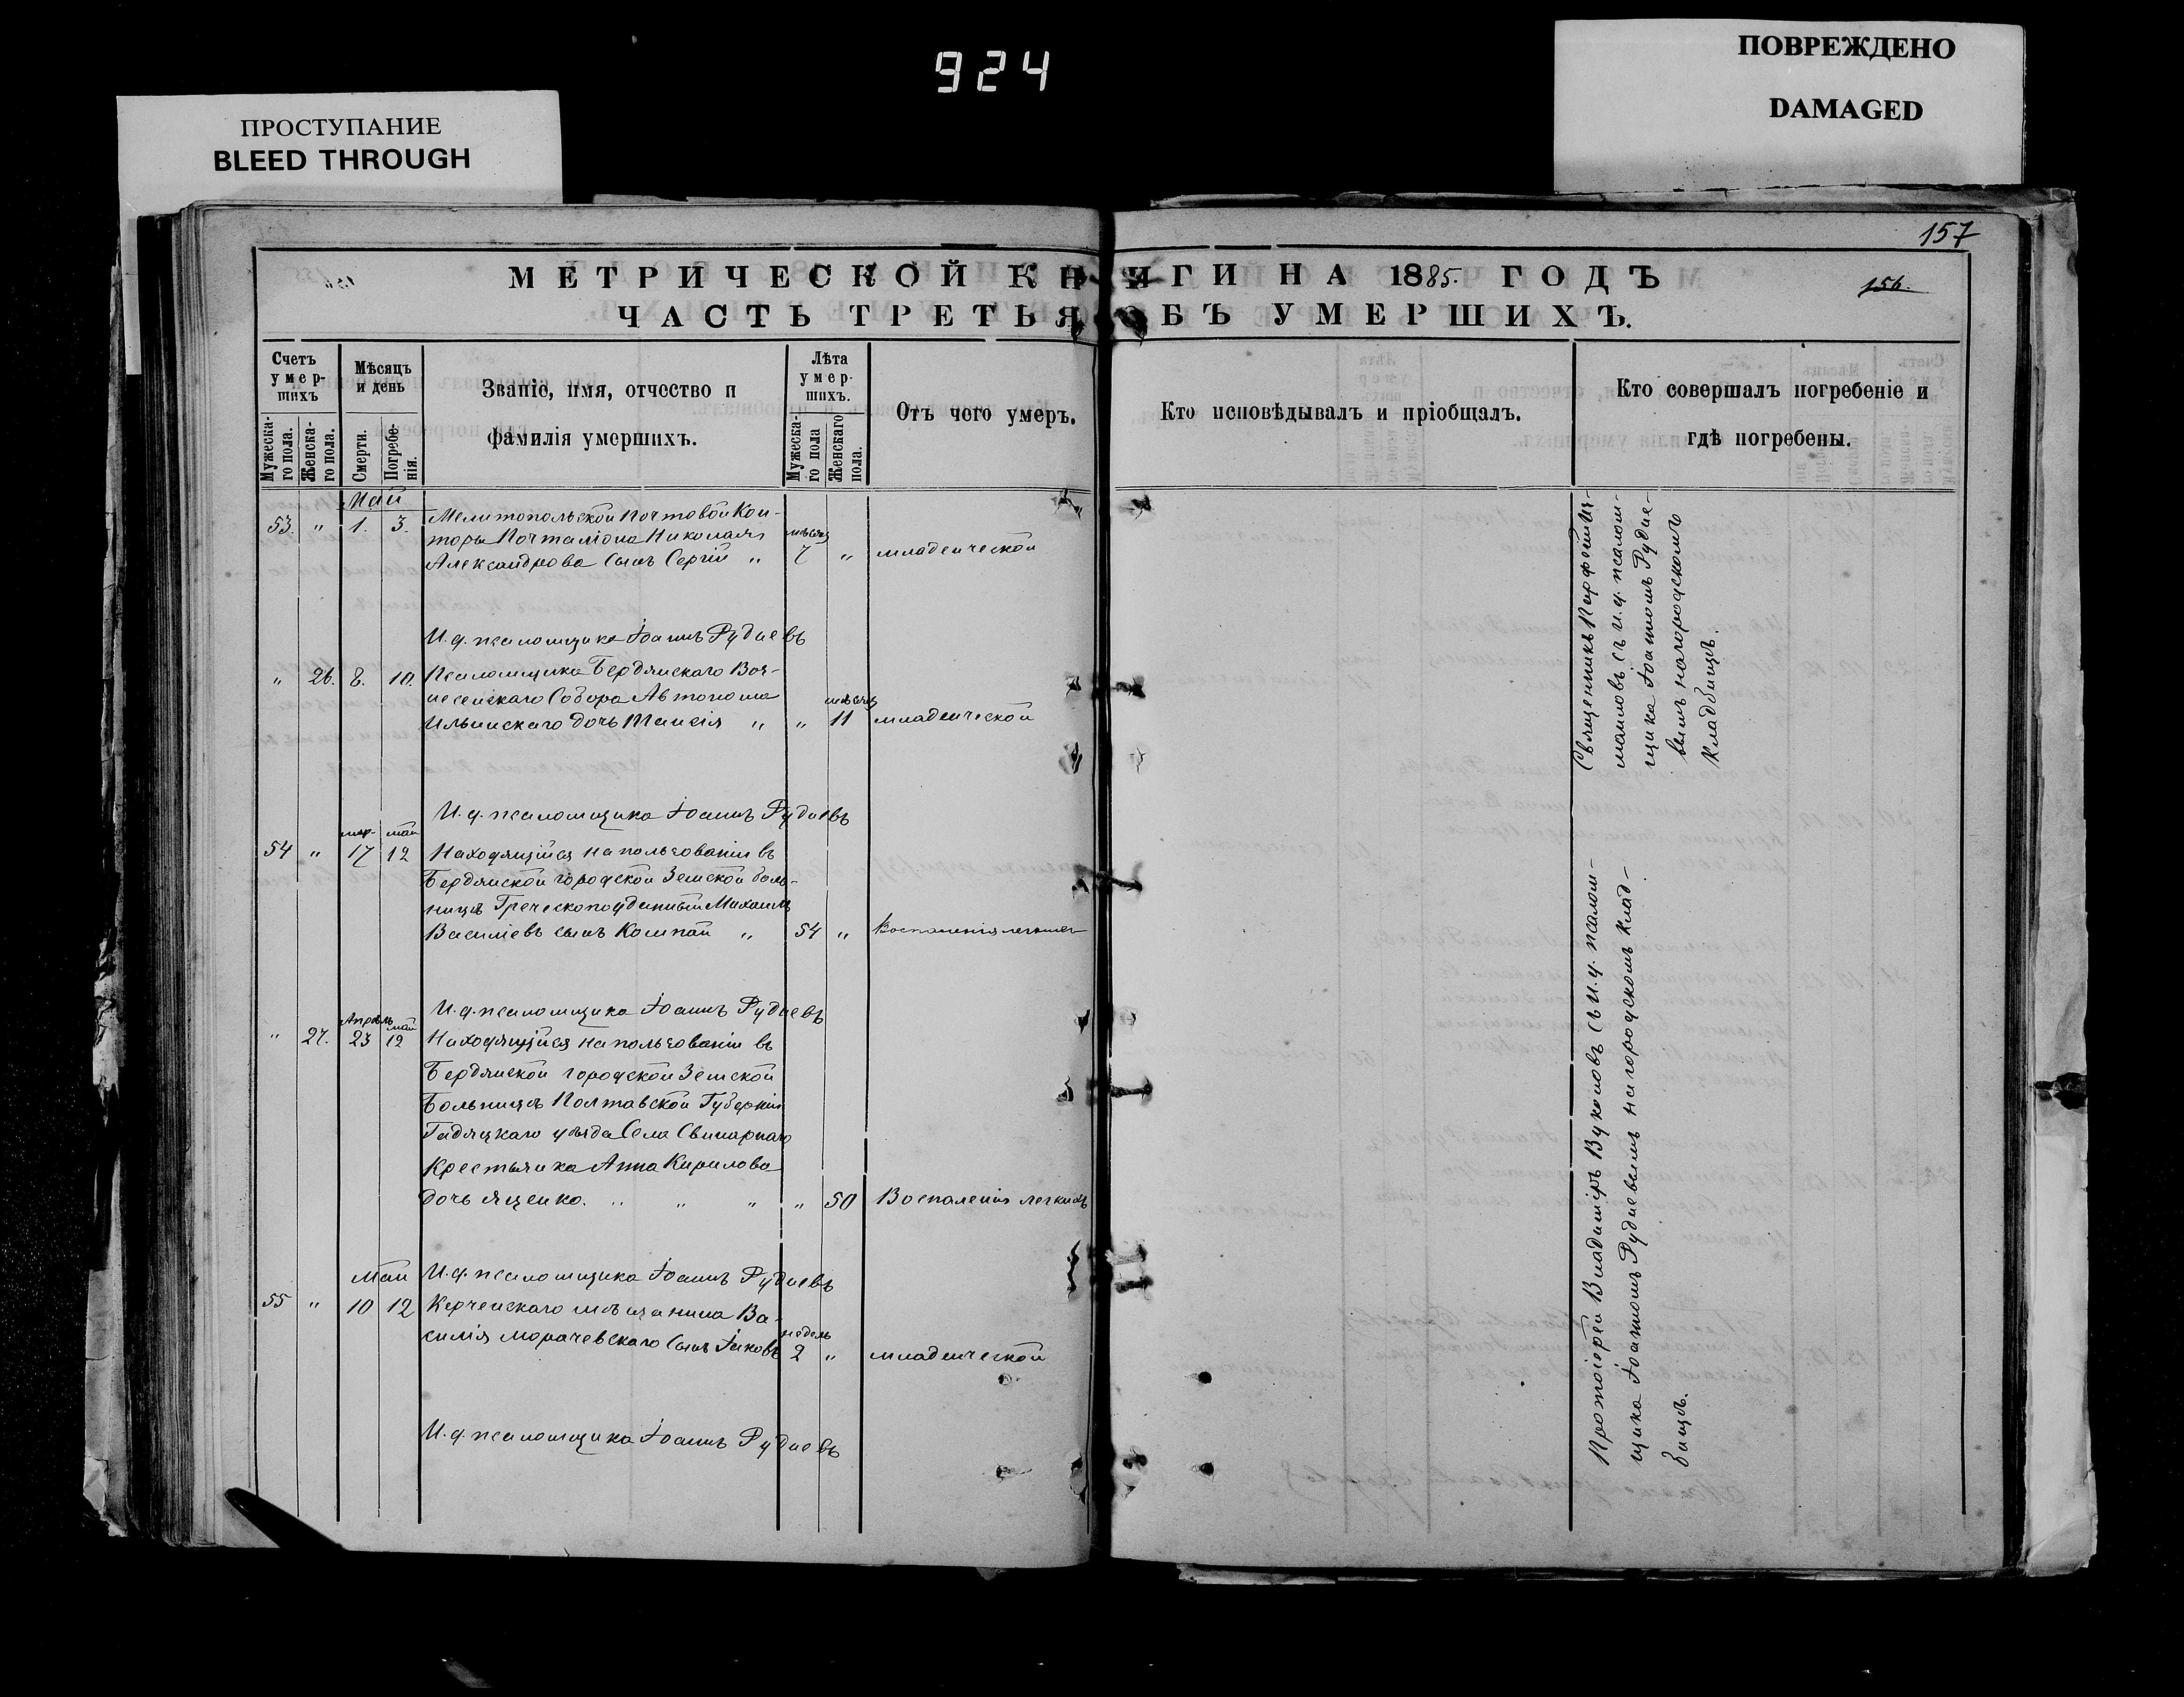 924
ПРОСТУПАНИЕ
BLEED THROUGH
ПОВРЕЖДЕНО
DAMAGED
157
МЕТРИЧЕСКОЙ КНИГИ НА 1885. ГОДЪ
156.
ЧАСТЬ ТРЕТЬЯ ОБЪ УМЕРШИХЪ.
Счетъ умер-шихъ
Мужеска-го пола.
Женска-го пола.
Мѣсяцъ и день
Смерти.
Погребе-нія.
Званіе, имя, отчество и
фамилія умершихъ.
Лѣта умер-шихъ.
Мужеска-го пола
Женскаго пола.
Отъ чего умеръ.
Кто исповѣдывалъ и пріобщалъ.
Кто совершалъ погребеніе и
гдѣ погребены.
Май
53. " 1. 3. Мелитопольской Почтовой Кон-
торы Почталіона Николая мѣсяц
Александрова сынъ Сергій " 7 " младенческой
И. д. псаломщика Іоаннъ Рудневъ
" 26. 8. 10. Псаломщика Бердянскаго Воз-
несенскаго Собора Автонома мѣсяц
Ильинскаго дочь Таисія " " 11 младенческой
И. д. псаломщика Іоаннъ Рудневъ
мар- май
54 " 17 12 Находящійся на пользованіи въ
Бердянской городской Земской боль-
ницѣ Греческоподданный Михаилъ
Василіевъ сынъ Компан " 54 " Воспаленія легких
И. д. псаломщика Іоаннъ Рудневъ
Апрѣль май
" 27. 23 12 Находящійся на пользованіи въ
Бердянской городской Земской
Больницѣ Полтавской Губерніи
Гадяцкаго уѣзда Села Свинарнаго
Крестьянка Анна Кирилова
дочь Яценко. " " " " 50 Воспаленія легкихъ
Май И. д. псаломщика Іоаннъ Рудневъ
55 " 10 12 Керченскаго мѣщанина Ва-
недель
силія Морачевскаго сынъ Іаковъ 2 " младенческой
И. д. псаломщика Іоаннъ Рудневъ
Священникъ
мановъ съ и. д. псалом-
щика Іоанномъ Рудне-
вымъ на городскомъ
кладбищѣ.
Протоіерей Владиміръ Вуколовъ съ И. д. псалом-
щика Іоанномъ Рудневымъ на городскомъ клад-
бищѣ.